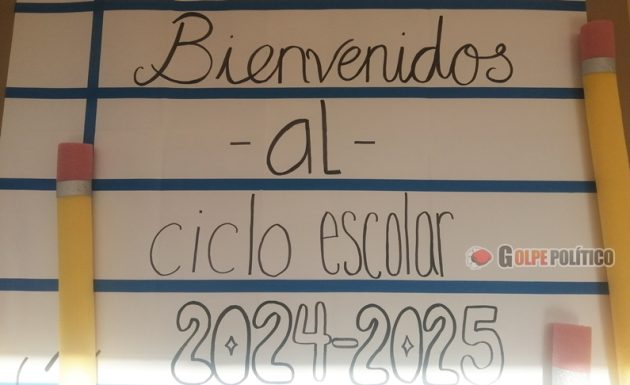 Bienvenidos
- al -
ciclo escolar
GOLPE POLÍTICO
2024-2025